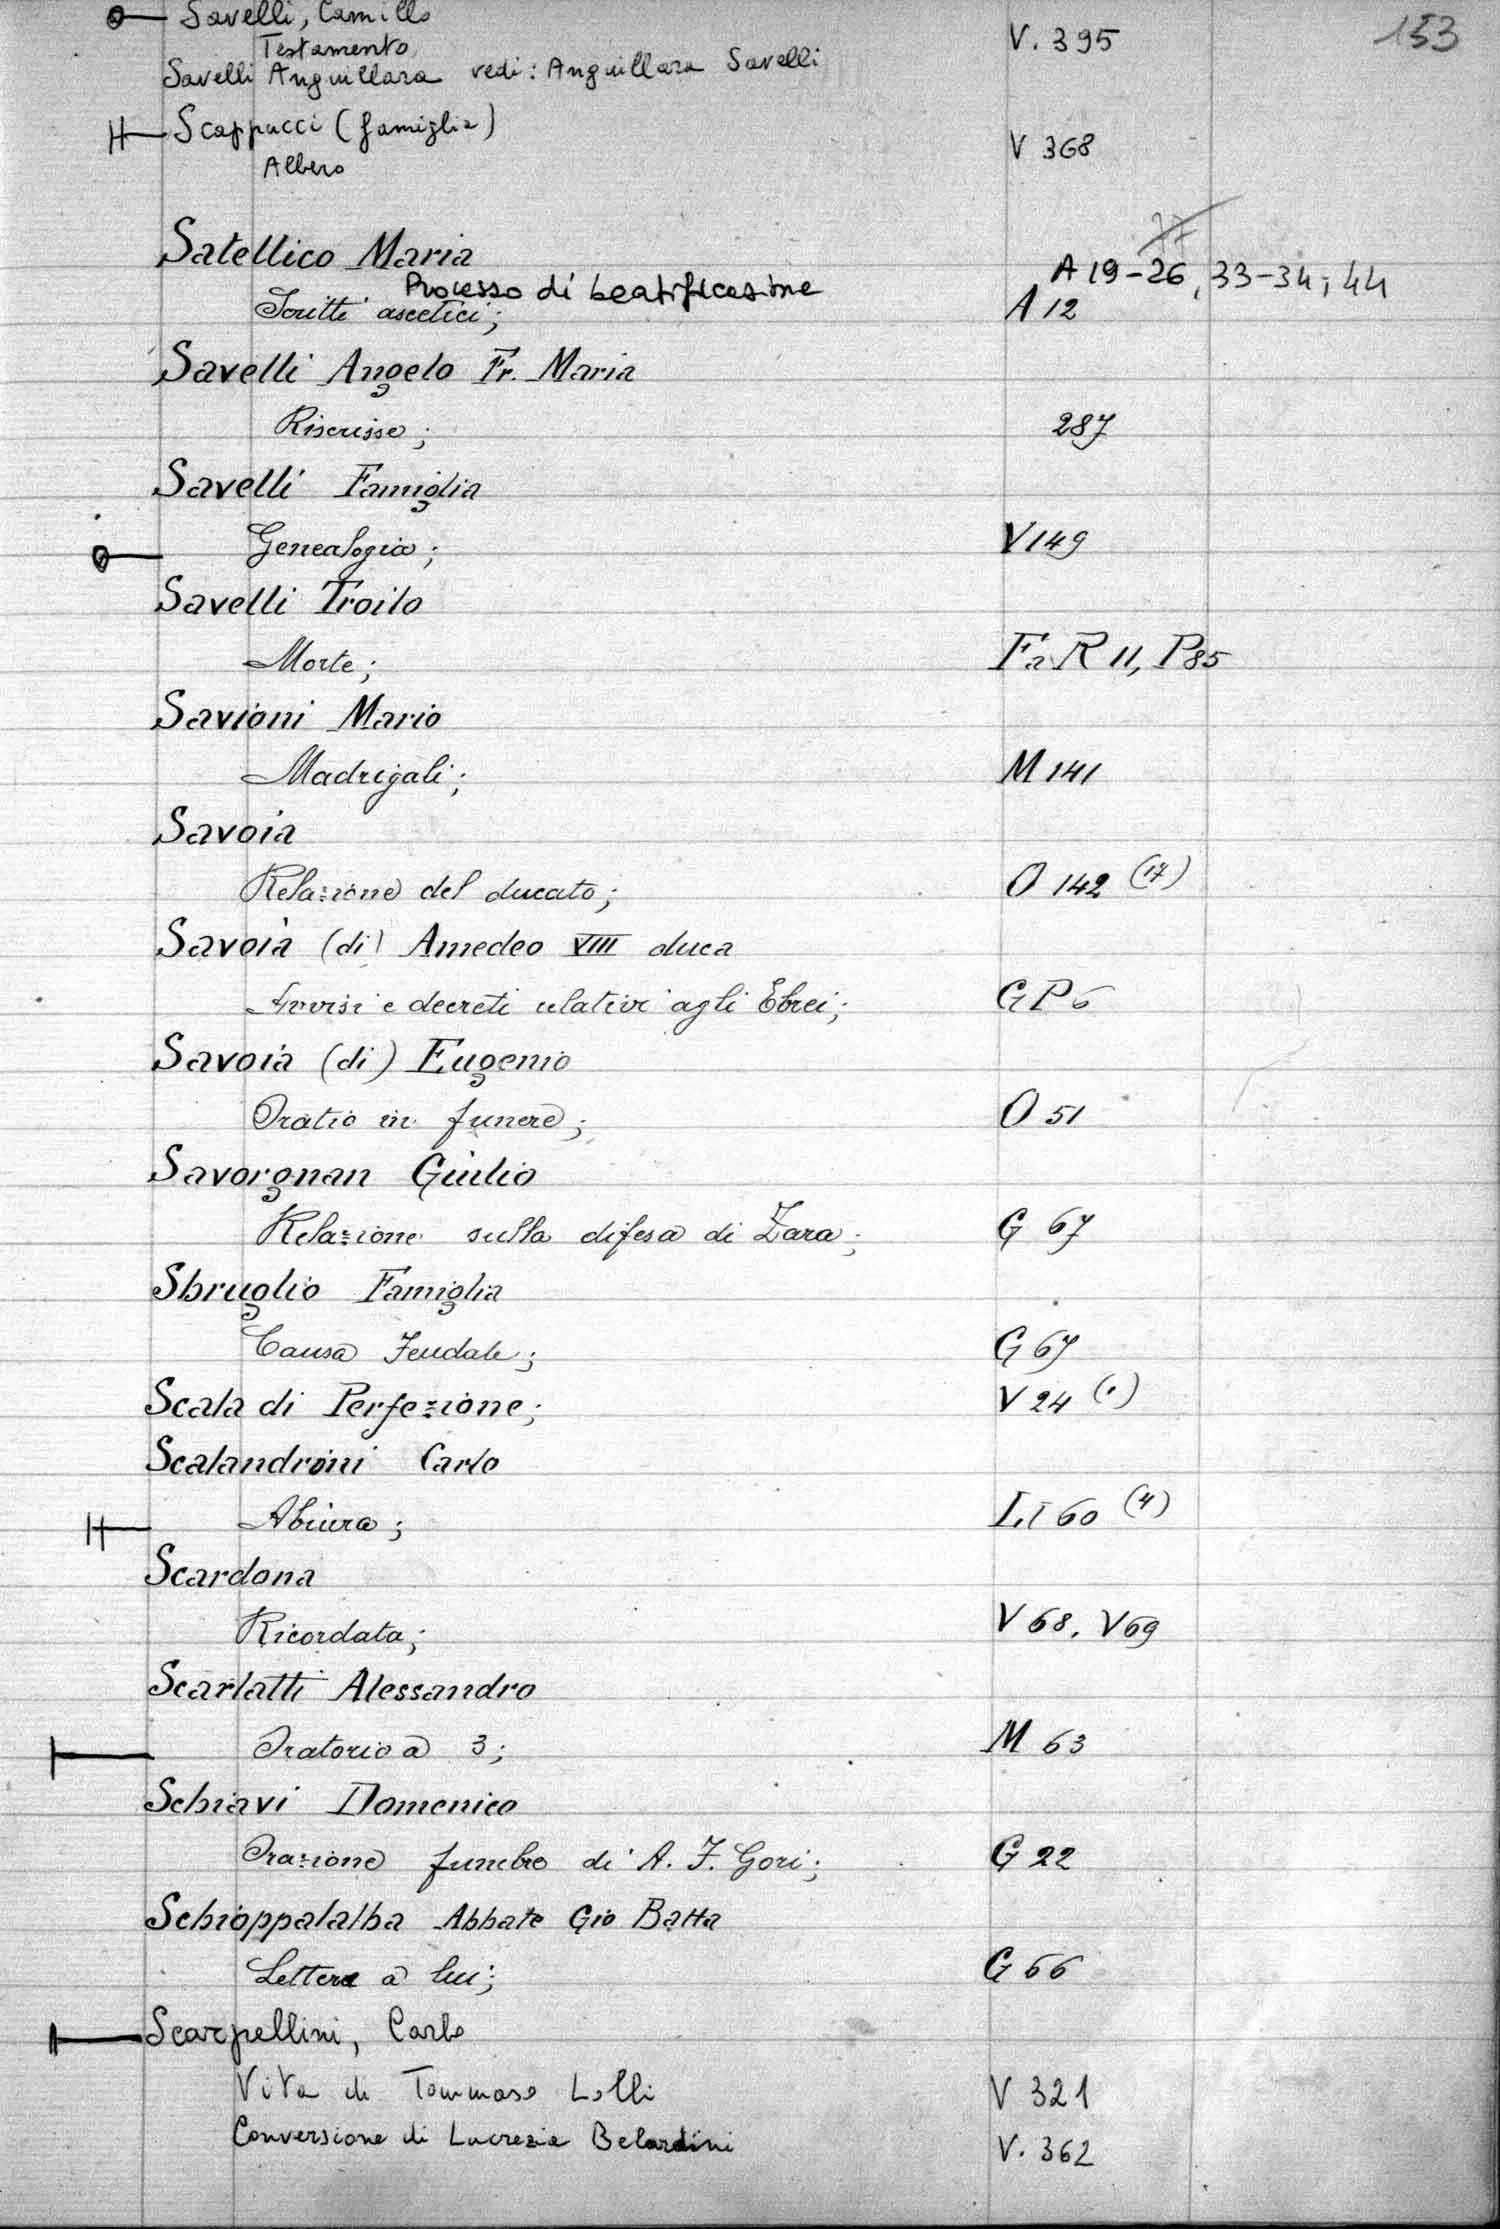 153
Savelli, Camillo
Testamento V. 395
Savelli Anguillara vedi: Anguillara Savelli
Scappucci (famiglia)
Albero V 368
Satellico Maria
Processo di beatificazione A 19-26, 33-34; 44
Scritti ascetici; A 12
Savelli Angelo Fr. Maria
Riscrisse; 287
Savelli Famiglia
Genealogia; V 149
Savelli Troilo
Morte; Fa R 11, P 85
Savioni Mario
Madrigali; M 141
Savoia
Relazione del ducato; O 142 (17)
Savoia (di) Amedeo VIII duca
Avvisi e decreti relativi agli Ebrei; G P 6
Savoia (di) Eugenio
Oratio in funere; O 51
Savorgnan Giulio
Relazione sulla difesa di Zara; G 67
Sbruglio Famiglia
Causa Feudale; G 67
Scala di Perfezione; V 24 (1)
Scalandroni Carlo
Abiura; LI 60 (4)
Scardona
Ricordata; V 68, V 69
Scarlatti Alessandro
Oratorio a 3; M 63
Schiavi Domenico
Orazione funebre di A. F. Gori; G 22
Schioppalalba Abbate Gio Batta
Lettera a lui; G 66
Scarpellini, Carlo
Vita di Tommaso Lolli V 321
Conversione di Lucrezia Belardini V. 362